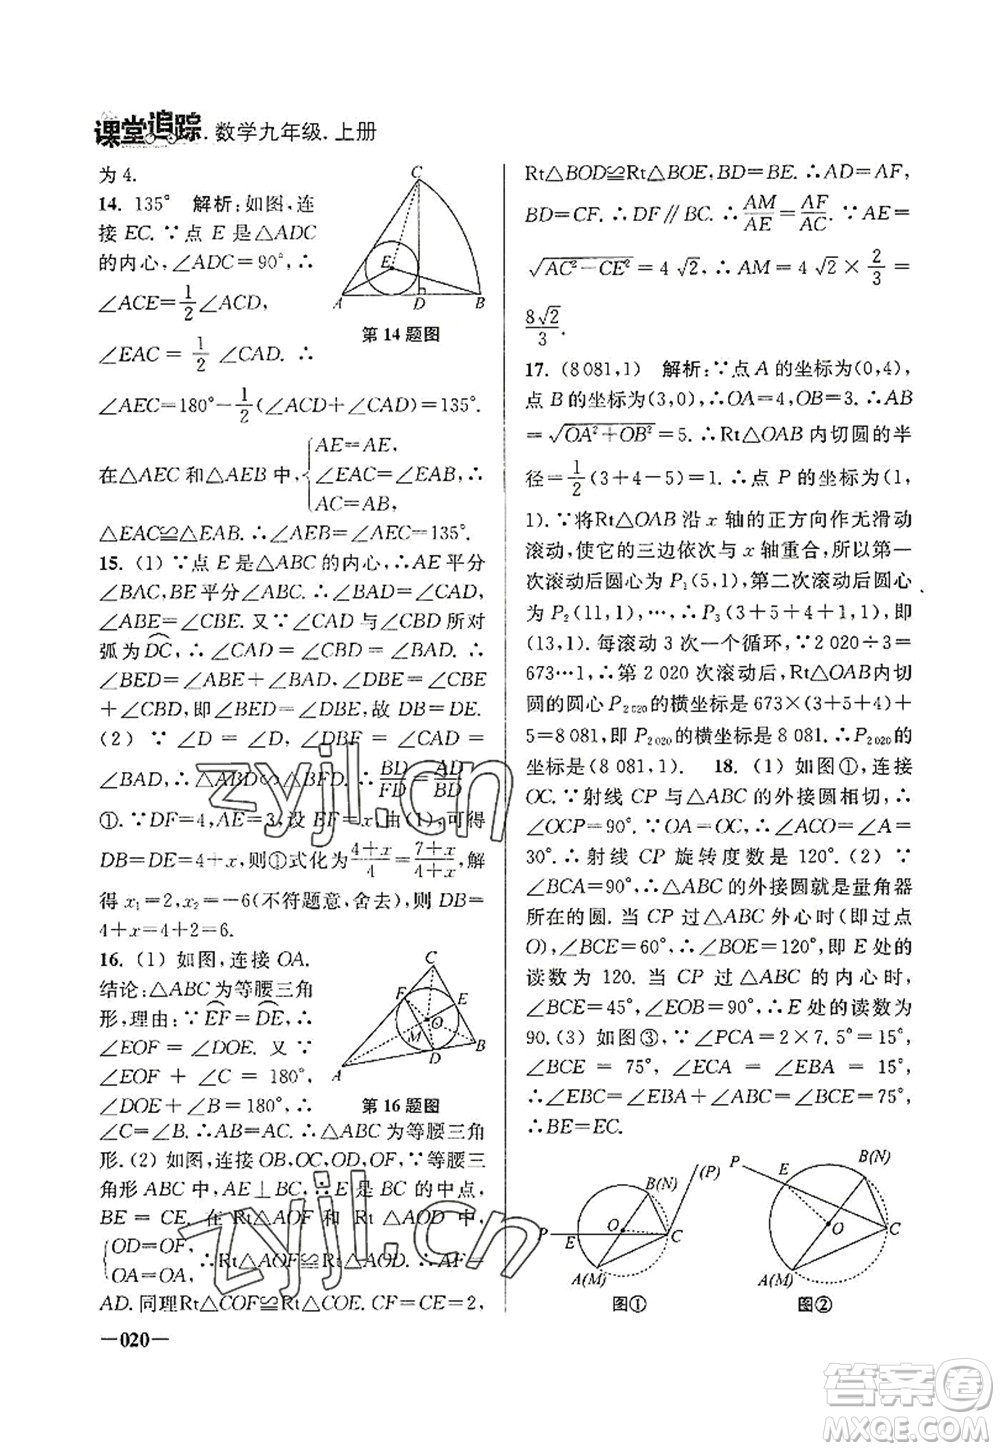 课堂追踪.数学九年级.上册
为 4.
14. 135° 解析:如图,连
接 EC. ∵点 E 是△ADC
的内心,∠ADC=90°,∴
∠ACE=1/2∠ACD,
∠EAC = 1/2 ∠CAD. ∴
∠AEC=180°−1/2(∠ACD+∠CAD)=135°.
在△AEC 和△AEB 中,{AE=AE,
∠EAC=∠EAB,
AC=AB,
△EAC≌△EAB. ∴∠AEB=∠AEC=135°.
C
E
A D B
第 14 题图
15. (1) ∵点 E 是△ABC 的内心,∴AE 平分
∠BAC,BE 平分∠ABC. ∴∠BAD=∠CAD,
∠ABE=∠CBE. 又∵∠CAD 与∠CBD 所对
弧为DC,∴∠CAD = ∠CBD = ∠BAD. ∴
∠BED=∠ABE+∠BAD,∠DBE = ∠CBE
+∠CBD,即∠BED=∠DBE,故 DB=DE.
(2) ∵ ∠D = ∠D, ∠DBF = ∠CAD =
∠BAD,∴△ABD∽△BFD. ∴BD/FD=AD/BD
①. ∵DF=4,AE=3,设 EF=x,由(1)可得
DB=DE=4+x,则①式化为(4+x)/4=(7+x)/(4+x),解
得 x₁=2,x₂=−6(不符题意,舍去),则 DB=
4+x=4+2=6.
16. (1) 如图,连接 OA.
结论:△ABC 为等腰三角
形,理由:∵EF=DE,∴
∠EOF = ∠DOE. 又 ∵
∠EOF + ∠C = 180°,
∠DOE+∠B=180°,∴
∠C=∠B. ∴AB=AC. ∴△ABC 为等腰三角
形. (2) 如图,连接 OB,OC,OD,OF,∵等腰三
角形 ABC 中,AE⊥BC,∴E 是 BC 的中点,
BE = CE. 在 Rt△AOF 和 Rt△AOD 中,
{OD=OF,
OA=OA, ∴Rt△AOF≌Rt△AOD. ∴AF=
AD. 同理Rt△COF≌Rt△COE. CF=CE=2,
C
F E
O
M
D B
A
第 16 题图
—020—
Rt△BOD≌Rt△BOE,BD=BE. ∴AD=AF,
BD=CF. ∴DF∥BC. ∴AM/AE=AF/AC. ∵AE=
√(AC²−CE²)=4√2,∴AM=4√2×2/3=
8√2/3.
17. (8 081,1) 解析:∵点 A 的坐标为(0,4),
点 B 的坐标为(3,0),∴OA=4,OB=3. ∴AB
=√(OA²+OB²)=5. ∴Rt△OAB 内切圆的半
径=1/2(3+4−5)=1. ∴点 P 的坐标为(1,
1). ∵将Rt△OAB 沿 x 轴的正方向作无滑动
滚动,使它的三边依次与 x 轴重合,所以第一
次滚动后圆心为 P₁(5,1),第二次滚动后圆心
为 P₂(11,1),…,∴P₃(3+5+4+1,1),即
(13,1). 每滚动 3 次一个循环,∵2 020÷3=
673…1,∴第 2 020 次滚动后,Rt△OAB 内切
圆的圆心 P₂₀₂₀的横坐标是 673×(3+5+4)+
5=8 081,即 P₂₀₂₀的横坐标是 8 081. ∴P₂₀₂₀的
坐标是(8 081,1). 18. (1) 如图①,连接
OC. ∵射线 CP 与△ABC 的外接圆相切,∴
∠OCP=90°. ∵OA=OC,∴∠ACO=∠A=
30°. ∴射线 CP 旋转度数是 120°. (2) ∵
∠BCA=90°,∴△ABC 的外接圆就是量角器
所在的圆. 当 CP 过△ABC 外心时(即过点
O),∠BCE=60°,∴∠BOE=120°,即 E 处的
读数为 120. 当 CP 过△ABC 的内心时,
∠BCE=45°,∠EOB=90°,∴E 处的读数为
90. (3) 如图③,∵∠PCA=2×7.5°=15°,
∠BCE = 75°, ∠ECA = ∠EBA = 15°,
∴∠EBC=∠EBA+∠ABC=∠BCE=75°,
∴BE=EC.
(P) B(N)
O
P E C
A(M)
图①
P E B(N)
O C
A(M)
图②
zyjl.cn
zyjl.cn
答案圈
MXQE.COM